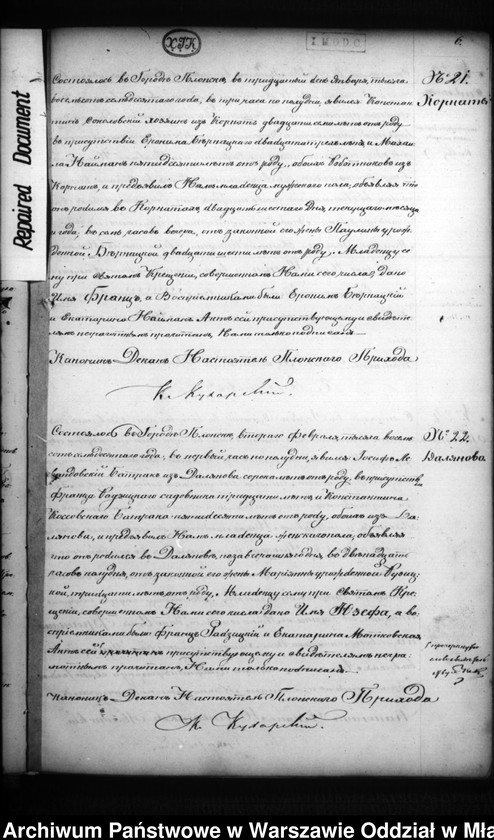 6.
Repaired Document
№ 21.
Корнаты
Состоялось въ Городѣ Плонскѣ, въ тридцатый день Января, тысяча
восемьсотъ семьдесятаго года, въ три часа по полудни, явился Констан
тинъ Соколовскій хозяинъ изъ Корнатъ двадцати семи лѣтъ отъ роду
въ присутствіи Еронима Бѣрнацкаго двадцати трехъ лѣтъ, и Михаи
ла Наймана пятидесяти лѣтъ отъ роду, обоихъ Работниковъ изъ
Корнатъ, и предъявилъ Намъ младенца мужескаго пола, объявляя что
онъ родился въ Корнатахъ двадцать шестаго дня, текущаго мѣсяца
и года, въ семь часовъ вечера, отъ законной его жены Паулины урож
денной Бѣрнацкой двадцати шести лѣтъ отъ роду. Младенцу се
му при святомъ Крещеніи, совершенномъ Нами сего числа, дано
Имя Францъ, а Воспріемниками были Еронимъ Бѣрнацкій
и Екатерина Найманъ. Актъ сей присутствующему и свидѣте
лямъ неграмотнымъ прочитанъ, Нами только подписанъ.
Каноникъ Деканъ Настоятель Плонскаго Прихода
Кс. Кухарскій.
№ 22.
Даляново.
Состоялось въ Городѣ Плонскѣ, втораго Февраля, тысяча восемь
сотъ семьдесятаго года, въ первый часъ по полудни, явился Іосифъ
Батракъ изъ Далянова сорока лѣтъ отъ роду, въ присутствіи
Франца садовника тридцати лѣтъ, и Константина
Коссовскаго Батрака пятидесяти лѣтъ отъ роду, обоихъ изъ Да
лянова, и предъявилъ Намъ младенца женскаго пола, объявляя
что онъ родился въ Даляновѣ, позавчерашняго дня, въ двѣнадцать
часовъ полудня, отъ законной его жены Маріянны урожденной
кой, тридцати лѣтъ отъ роду. Младенцу сему при святомъ Кре
щеніи, совершенномъ Нами сего числа, дано Имя Юзефа, а во
спріемниками были Францъ Радзицкій и Екатерина Мотковская
Актъ сей присутствующему и свидѣтелямъ негра
мотнымъ прочитанъ, Нами только подписанъ.
Каноникъ Деканъ Настоятель Плонскаго Прихода
Кс. Кухарскій.
Archiwum Państwowe w Warszawie Oddział w Mła